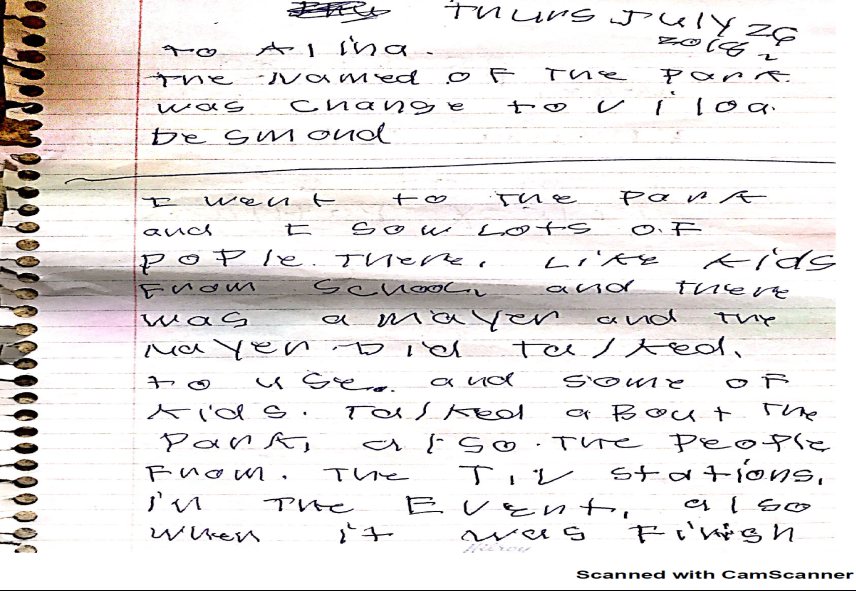 Thurs July 26
2018
to Alina.
The Named of the park
was change to Viloa.
Desmond
I went to the park
and I sow Lots of
pople. There. Like kids
From School, and there
was a mayer and the
Mayer. Did talked.
to use. and some of
kids. Talked a Bout the
Park, also. The people
From. The T.V stations,
in the Event, also
when it was Finish
Scanned with CamScanner